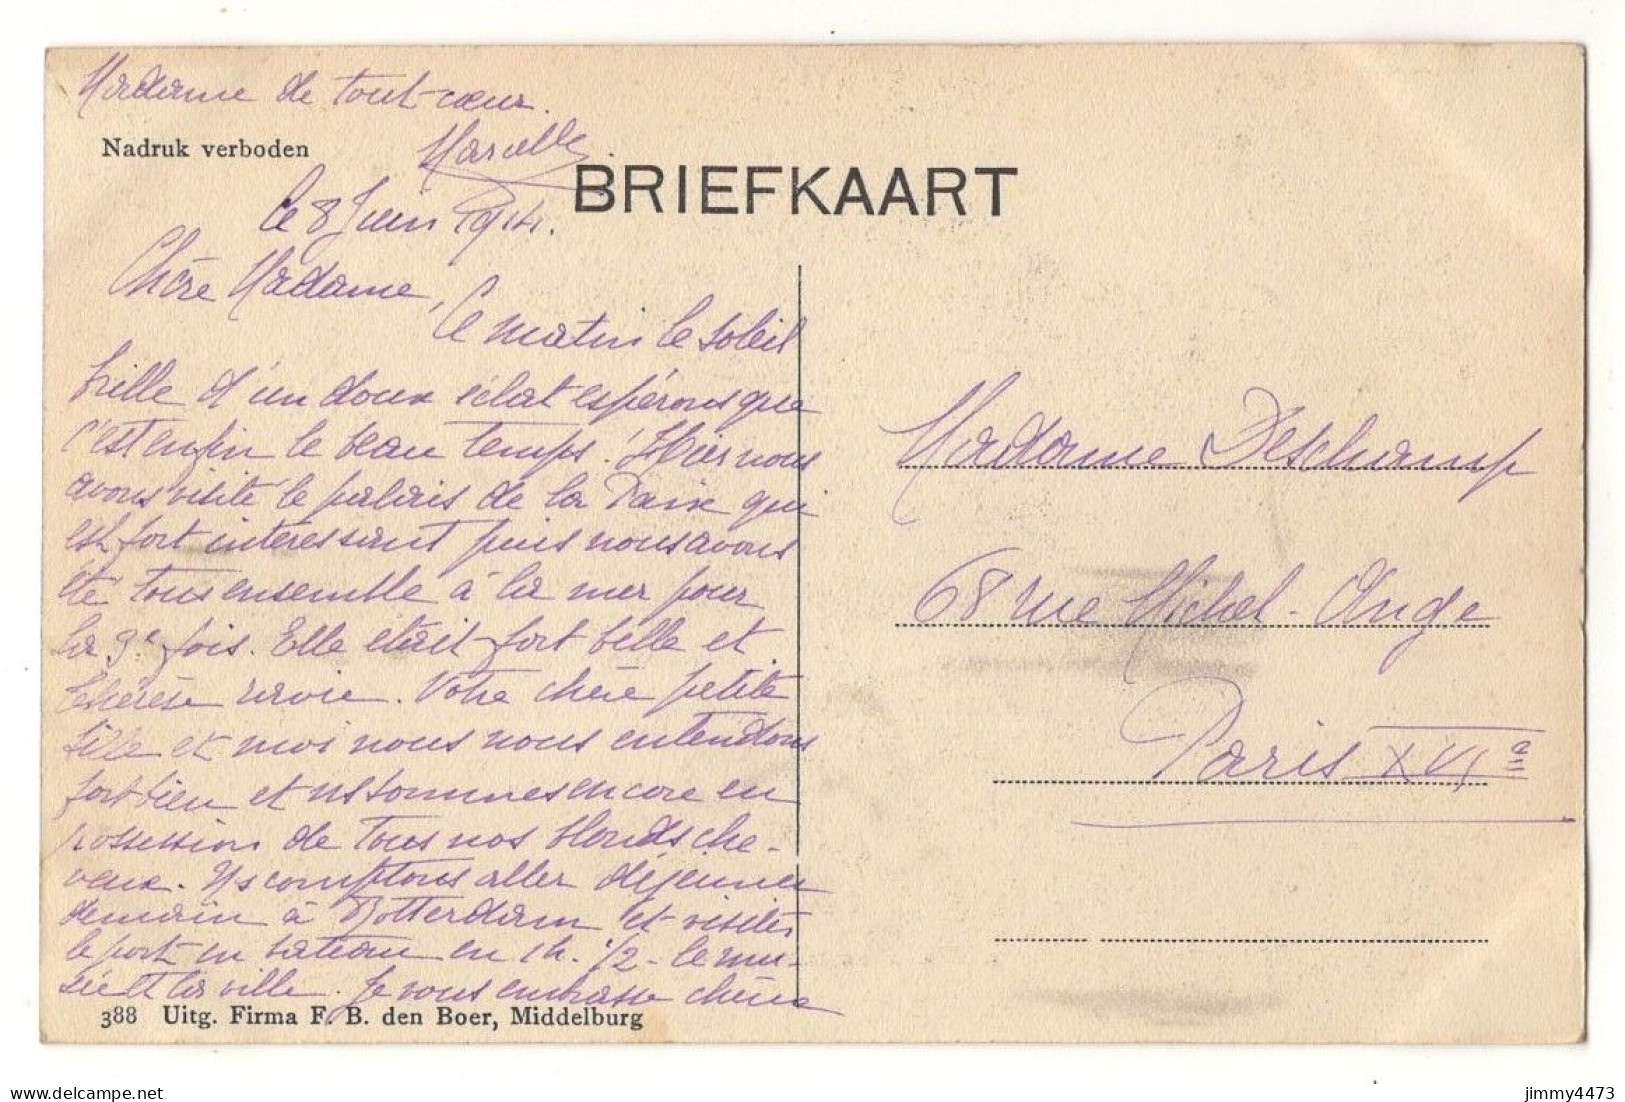 Madame de tout cœur.
Marcelle
Nadruk verboden
BRIEFKAART
le 8 Juin 1914.
Chère Madame,
Ce matin le soleil
brille d'un doux éclat espérons que
c'est enfin le beau temps ! Hier nous
avons visité le palais de la Paix qui
est fort intéressant puis nous avons
été tous ensemble à la mer pour
la 3e fois. Elle était fort belle et
Thérèse ravie. Votre chère petite
fille et moi nous nous entendons
fort bien et ns sommes encore en
possession de tous nos blonds che-
veux. Ns comptons aller déjeuner
demain à Rotterdam et visiter
le port en bateau en 1h. 1/2 - le mu-
sée et la ville. Je vous embrasse chère
388 Uitg. Firma F. B. den Boer, Middelburg
Madame Deschamp
68 rue Michel-Ange
Paris XVIe
jimmy4473
delcampe.net